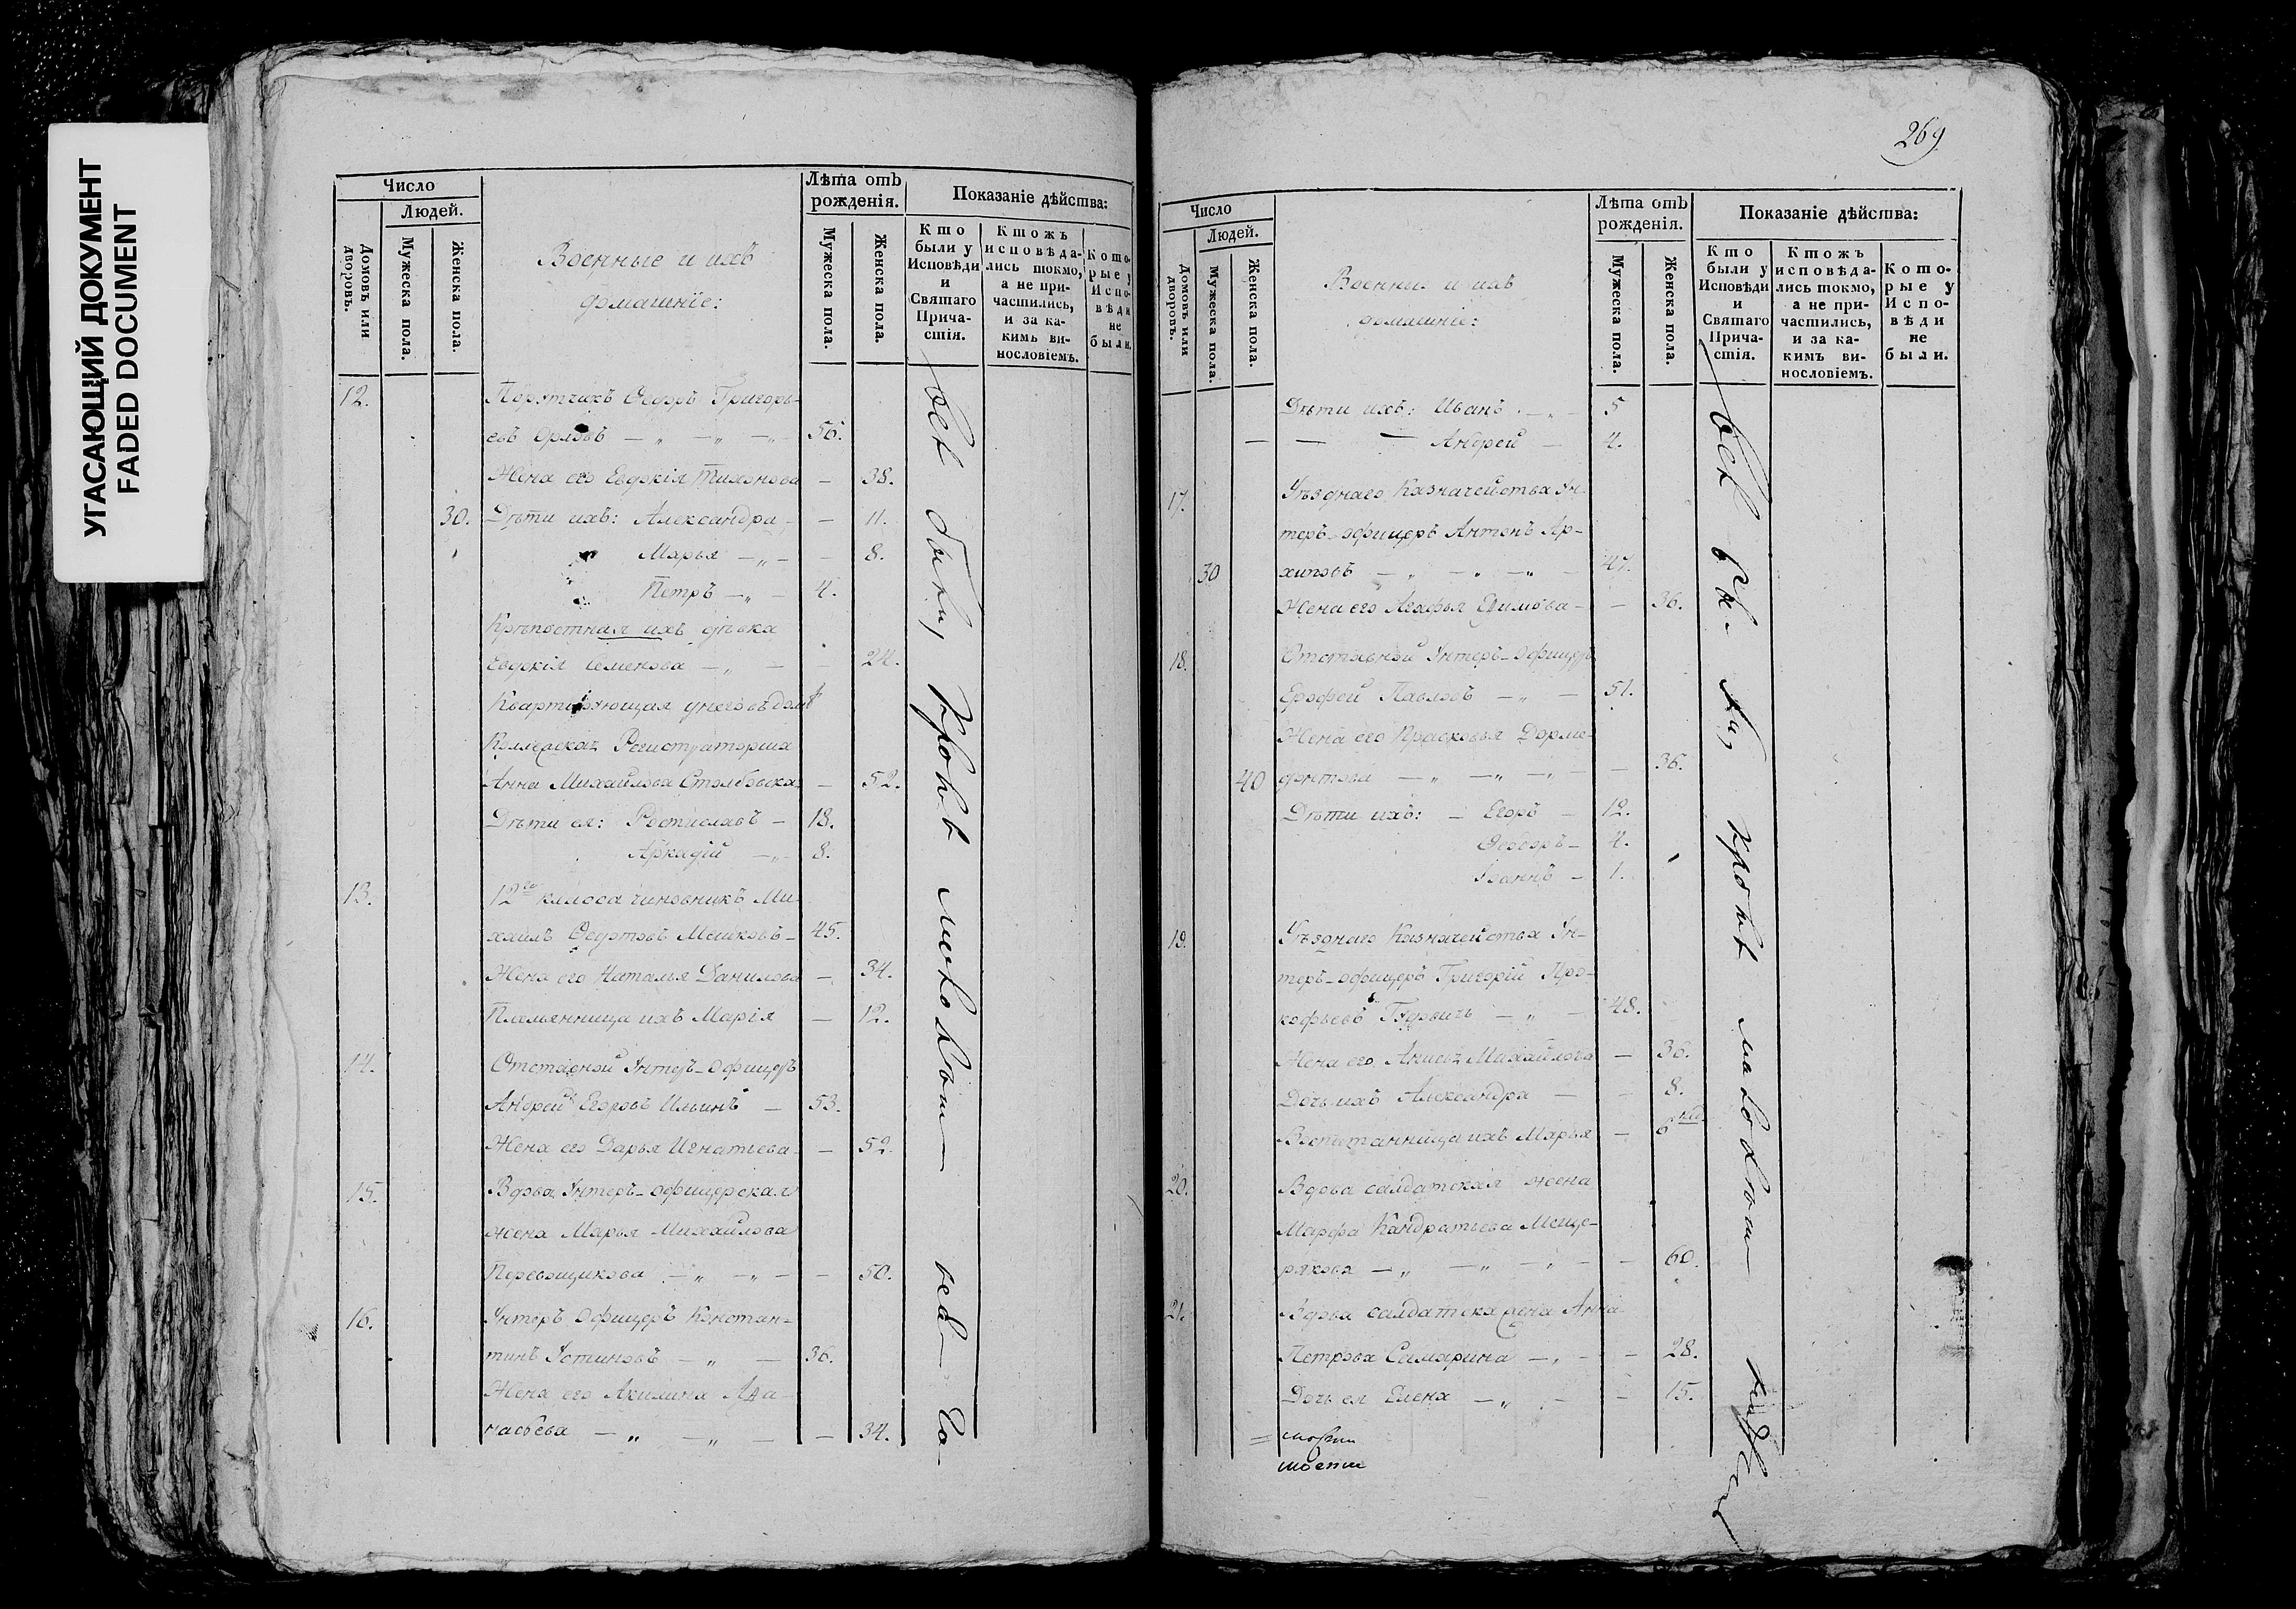 УГАСАЮЩИЙ ДОКУМЕНТ
FADED DOCUMENT
Число
Людей.
Домовъ или дворовъ.
Мужеска пола.
Женска пола.
Военные и ихъ
домашніе:
Лѣта отъ
рожденія.
Мужеска пола.
Женска пола.
Показаніе дѣйства:
Кто
были у
Исповѣди
и
Святаго
Прича-
стія.
Ктожъ
исповѣда-
лись токмо,
а не при-
частились,
и за ка-
кимъ ви-
нословіемъ.
Кото-
рые у
Испо-
вѣди
не
были.
12. Порутчикъ Ѳедоръ Григорь-
евъ Орловъ — „ — „ — „ 56.
Жена его Евдокія Тихонова — 38.
30. Дѣти ихъ: Александра — — 11.
Марья — „ — — 8.
Петръ — „ — 4.
Крѣпостная ихъ дѣвка
Евдокія Семенова — „ — — 24.
Квартирующая у него въ домѣ
Регистраторша
Анна Михайлова — 52.
Дѣти ея: Ростиславъ — 18.
Аркадій — „ 8.
13. 12го класса чиновникъ Ми-
хаилъ Ѳедотовъ Мешковъ — 45.
Жена его Наталья Данилова — 34.
Племянница ихъ Марія — 12.
14. Отставной Унтеръ-офицеръ
Андрей Егоровъ Ильинъ — 53.
Жена его Дарья Игнатьева — — 52.
15. Вдова Унтеръ-офицерская
жена Марья Михайлова
Перевощикова — „ — „ — — 50.
16. Унтеръ офицеръ Констан-
тинъ Устиновъ — „ — 36.
Жена его Акилина Аѳа-
насьева — „ — „ — — 34.
всѣ были, кромѣ
269
Число
Людей.
Домовъ или дворовъ.
Мужеска пола.
Женска пола.
Военныя и ихъ
домашніе:
Лѣта отъ
рожденія.
Мужеска пола.
Женска пола.
Показаніе дѣйства:
Кто
были у
Исповѣди
и
Святаго
Прича-
стія.
Ктожъ
исповѣда-
лись токмо,
а не при-
частились,
и за ка-
кимъ ви-
нословіемъ.
Кото-
рые у
Испо-
вѣди
не
были.
Дѣти ихъ: Иванъ — „ — 5
— — — Андрей — 4.
17. Уѣзднаго Казначейства Ун-
теръ-офицеръ Антонъ Ар-
30 хиповъ — „ — „ — „ — 47.
Жена его Агафья Ефимова — — 36.
18. Отставный Унтеръ-офицеръ
Ерофей Павловъ — „ — 51.
Жена его Прасковья Дорме-
40 донтова — „ — „ — „ — — 36.
Дѣти ихъ: — Егоръ — 12.
Ѳеодоръ — 4.
Іоаннъ — 1.
19. Уѣзднаго Казначейства Ун-
теръ-офицеръ Григорій Про-
кофьевъ — „ — 48.
Жена его Михайлова — 36.
Дочь ихъ Александра — — 8.
Воспитанница ихъ Марья — 6
20. Вдова салдатская жена
Марфа Кандратьева Меще-
рякова — „ — „ — „ — — 60.
21. Вдова салдатска жена Анна
Петрова Самарина — „ — — 28.
Дочь ея Елена — „ — — 15.
кромѣ